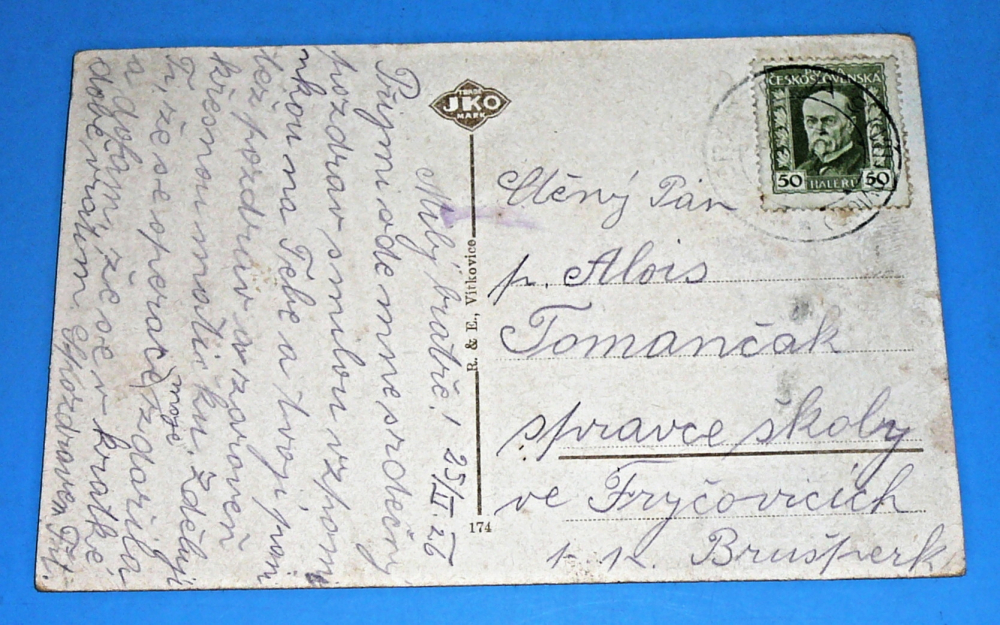 Milý bratře! 25/II 26
Přijmi ode mne srdečný
pozdrav s milou vzpomí
nkou na Tebe a tvoji paní
též pozdrav a zároveň
křesnou matičku. Zděluji
Ti, že se operace (moje) zdařila
a doufám, že se v krátké
době vrátím. S pozdravem
TRADE
JKO
MARK
R. & E., Vítkovice
174
POŠTA
ČESKOSLOVENSKÁ
50 HALÉŘŮ 50
Ctěný Pán
p. Alois
Tomančak
spravce školy
ve Fryčovicích
p. Brušperk